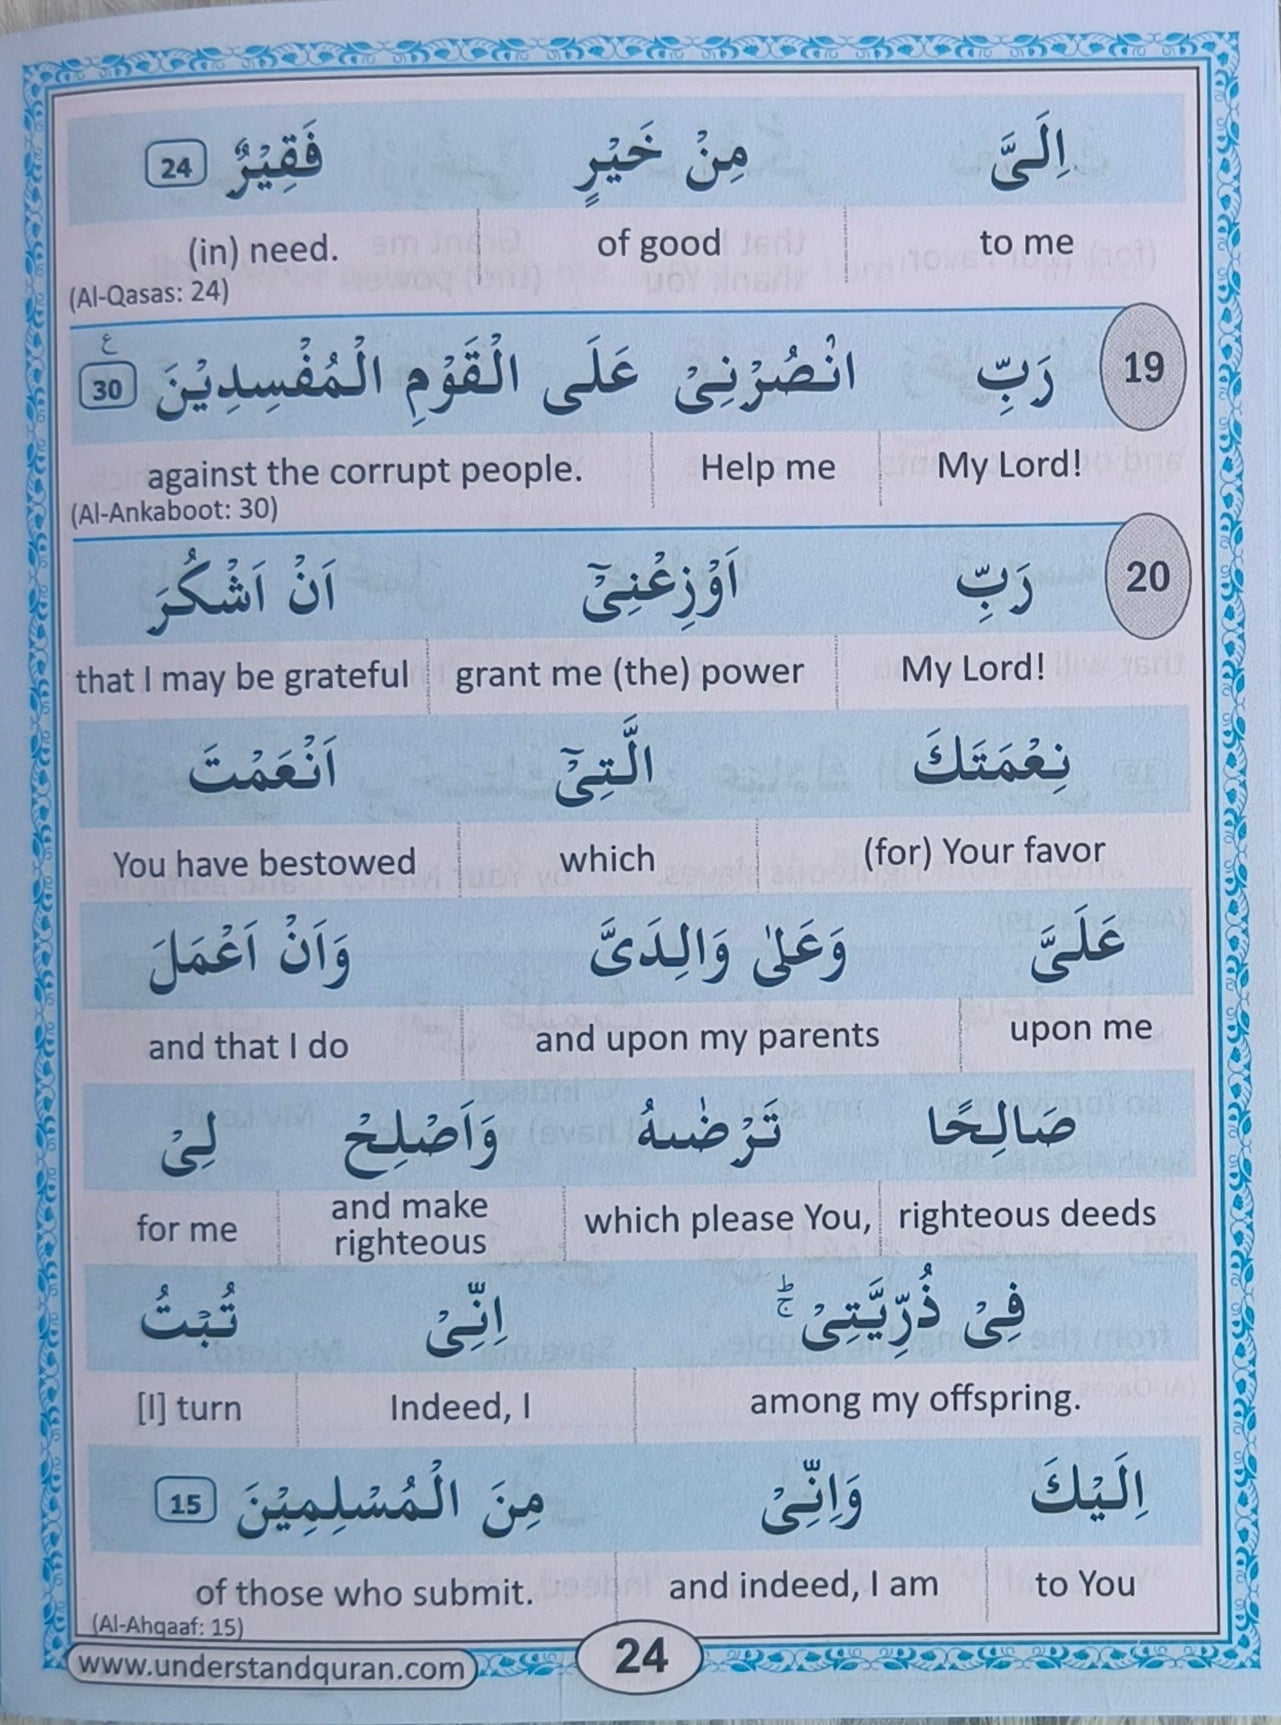 اِلَیَّ مِنْ خَیْرٍ فَقِیْرٌ 24
to me of good (in) need.
(Al-Qasas: 24)
19 رَبِّ انْصُرْنِیْ عَلَی الْقَوْمِ الْمُفْسِدِیْنَ 30 ع
My Lord! Help me against the corrupt people.
(Al-Ankaboot: 30)
20 رَبِّ اَوْزِعْنِیْۤ اَنْ اَشْكُرَ
My Lord! grant me (the) power that I may be grateful
نِعْمَتَكَ الَّتِیْۤ اَنْعَمْتَ
(for) Your favor which You have bestowed
عَلَیَّ وَعَلٰی وَالِدَیَّ وَاَنْ اَعْمَلَ
upon me and upon my parents and that I do
صَالِحًا تَرْضٰىهُ وَاَصْلِحْ لِیْ
righteous deeds which please You, and make righteous for me
فِیْ ذُرِّیَّتِیْ ۚؕ اِنِّیْ تُبْتُ
among my offspring. Indeed, I [I] turn
اِلَیْكَ وَاِنِّیْ مِنَ الْمُسْلِمِیْنَ 15
to You and indeed, I am of those who submit.
(Al-Ahqaaf: 15)
www.understandquran.com 24